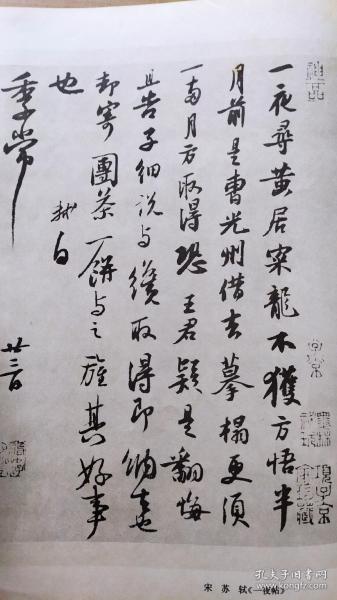 一夜尋黄居寀龍不獲方悟半
月前是曹光州借去摹榻更須
一兩月方取得恐王君疑是翻悔
且告子細説与纔取得即納去也
却寄團茶一餅与之旌其好事
也 軾白
季常
廿三日
項子京
家珍藏
宋 苏 轼《一夜帖》
孔夫子旧书网